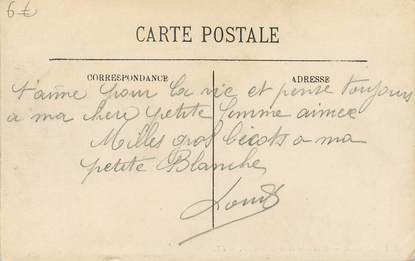 6€
CARTE POSTALE
CORRESPONDANCE
ADRESSE
t'aime pour la vie et pense toujours
a ma chere petite femme aimee
Milles gros bécots a ma
petite Blanche
Louis